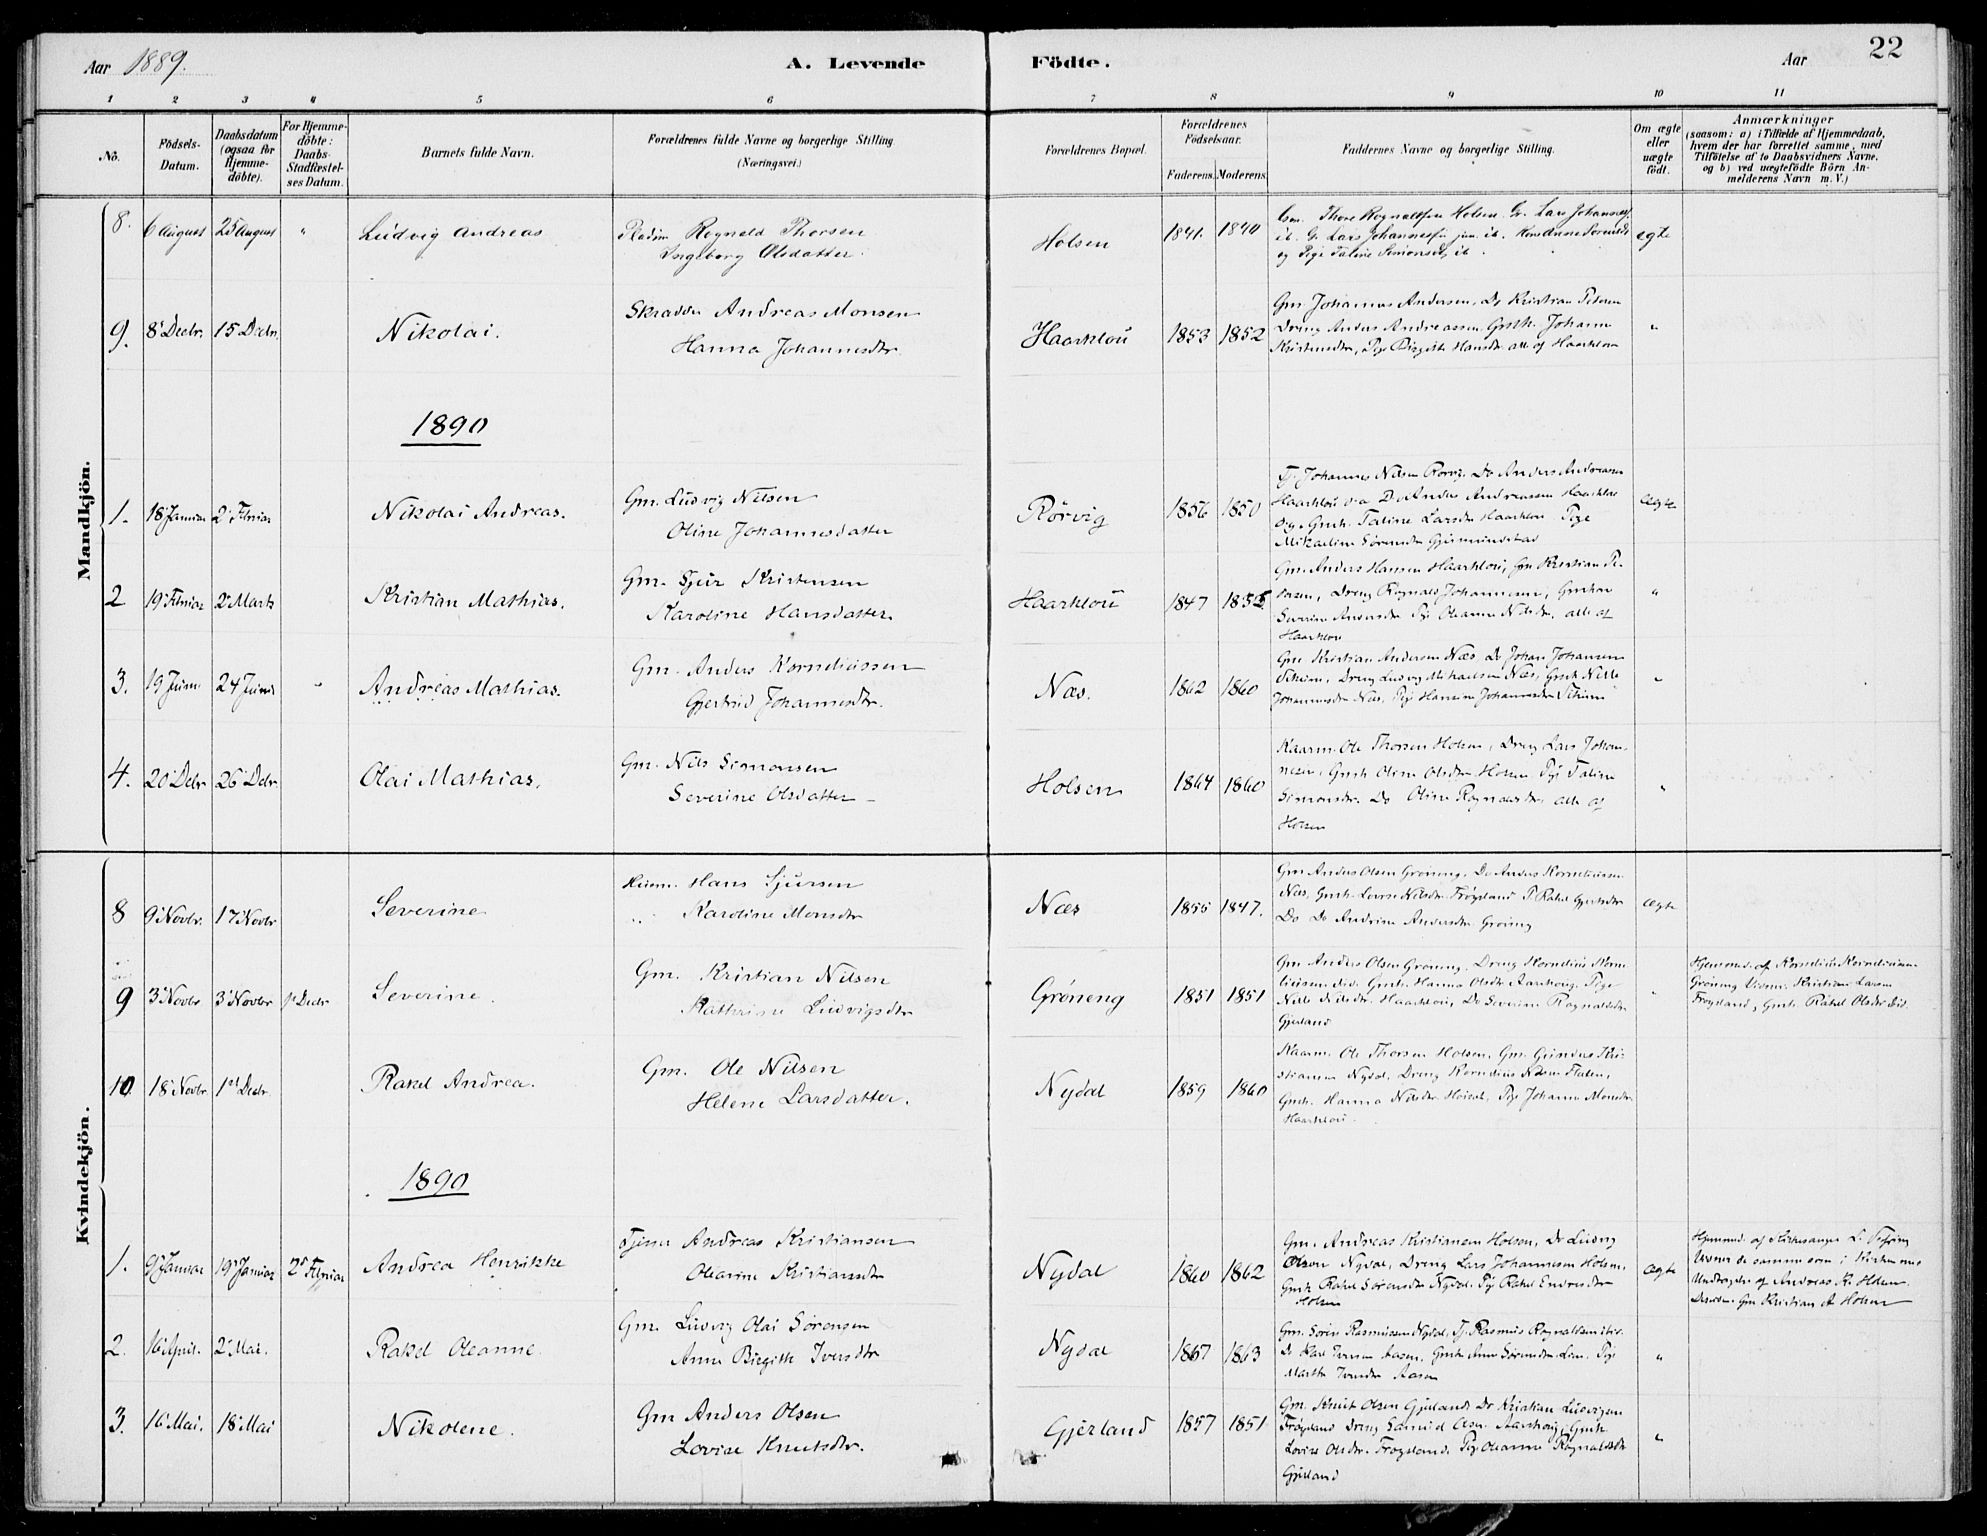 Aar 1889.
A. Levende Födte.
Aar
22
1 2 3 4 5 6 7 8 9 10 11
No.
Födsels-Datum.
Daabsdatum (ogsaa for Hjemme-döbte).
For Hjemme-döbte: Daabs-Stadfæstel-ses Datum.
Barnets fulde Navn.
Forældrenes fulde Navne og borgerlige Stilling
(Næringsvei.)
Forældrenes Bopæl.
Forældrenes Födselsaar.
Faderens. Moderens.
Faddernes Navne og borgerlige Stilling.
Om ægte eller uægte födt.
Anmærkninger
(saasom: a) i Tilfælde af Hjemmedaab,
hvem der har forrettet samme, med
Tilföielse af to Daabsvidners Navne,
og b) ved uægtefödte Börn An-
melderens Navn m. V.)
Mandkjön.
8. 6 August 25 August " Ludvig Andreas
Rognald Thorsen
Ingeborg Olsdatter.
Holsen 1841. 1840
Thore Rognaldsen Holsen. Lars Johannes
Lars Johannessen jun. ib.
og Pige Taline Simonsd. ib
egte
9. 8 Decbr. 15 Decbr. Nikolai.
Skradder Andreas Monsen
Hanna Johannesdtr.
Haarklou 1853 1852
Gm. Johannes Andersen, Do Kristian Petersen
Dreng Anders Andreassen Gmk. Johanne
Kristensdtr, Pige Birgith Hansdtr alle af Haarklou
"
1890
1. 18 Januar 2 Februar Nikolai Andreas.
Gm. Ludvig Nilsen
Oline Johannesdatter
Rörvig 1856 1850
Johannes Nilsen Rörvig. Do Anders Andreassen
Haarklou Do Anders Andreassen Haarklou
Gmk. Taline Larsdtr Haarklou Pige
Mikaeline Sörensdtr Gjesmundstad
Ægte
2 19 Februar 2 Marts Kristian Mathias.
Gm. Sjur Kristensen
Karoline Hansdatter
Haarklou 1847 1855
Gm. Anders Hansen Haarklou, Gm Kristian Pe-
tersen, Dreng Rognald Johannesen, Gmkone
Severine Andersdtr Pige Oleanne Nilsdtr, alle af
Haarklou
"
3. 19 Juni 24 Juni " Andreas Mathias.
Gm. Anders Korneliussen
Gjertrud Johannesdtr.
Næs. 1862 1860
Gm Kristian Andersen Næs Do Johan Johansen
Dreng Ludvig Mikaelsen Næs, Gmk Nille
Johannesdtr Næs, Pige Hansine Johannesdtr
"
4. 20 Decbr 26 Decbr. Olai Mathias.
Gm. Nils Simonsen
Severine Olsdatter
Holsen 1864 1860
Kaarm. Ole Thorsen Holsen, Dreng Lars Johan-
nesen, Gmk Oline Olsdtr Holsen Pige Taline
Simonsdtr. Do Oline Rognaldsdtr. alle af
Holsen
"
Kvindekjön.
8 9 Novbr. 17 Novbr Severine
Husm. Hans Sjursen
Karoline Monsdtr
Næs 1855 1847.
Gm Anders Olsen Gröneng. Do Anders Korneliussen
Næs, Gmk. Lovise Nilsdtr. Frøysland P. Rakel Gjertsdtr
Do Do Andrine Andersdtr Gröneng
Ægte
9 3 Novbr 3 Novbr 1 Decbr Severine.
Gm. Kristian Nilsen
Kathrine Ludvigsdtr
Gröneng 1851 1851
Gm Anders Olsen Gröneng. Dreng Kornelius Korne
liussen ibid. Gmk. Hanna Olsdtr Aarskoug. Pige
Nille Nilsdtr. Haarklou, Do Severine Rognaldsdtr
Gjerland
"
Hjemmed. af Kornelius Korneliussen
Gröneng Vidner. Kristian Larsen
Frøysland, Gmk. Rakel Olsdtr ibid.
10. 18 Novbr. 1st Decbr. Rakel Andrea.
Gm. Ole Nilsen
Helene Larsdatter.
Nydal 1859 1860
Kaarm. Ole Thorsen Holsen. Gm. Gunder Kri-
stiansen Nydal, Dreng Kornelius Nilsen Fladen,
Gmk. Hanna Nilsdtr Pige Johanna Monsdtr
Haarklou.
1890
1. 9 Januar 19 Januar 2 Februar Andrea Henrikke
Andreas Kristiansen
Olearine Kristiansdtr
Nydal 1860 1862
Gm. Andreas Kristiansen Holsen, Do Ludvig
Olsen Nydal, Dreng Lars Johannesen Holsen,
Gmk Rakel Sörensdtr Nydal. Pige Rakel Endresdtr
Holsen
Ægte
Hjemmed. af Kirkesanger
Vidner de samme som i Kirken
Undtagelse af Andreas K. Holsen
Gm Kristian A Holsen
2. 16 April. 2 Mai. Rakel Oleanne.
Gm. Ludvig Olai Sörensen
Anne Birgith Iversdtr
Nydal 1867 1863
Gm. Sören Rasmussen Nydal, Rasmus Rognaldsen ibid.
Do Iversen Aasen, Gmk Anne Sörensdtr Pige
Marthe Iversdtr Aasen
"
3. 16 Mai. 18 Mai Nikolene.
Gm Anders Olsen
Lovise Knutsdtr.
Gjerland 1857 1851
Gm. Knut Olsen Gjerland, Do Kristian Ludvigsen
Frøysland Dreng Samuel Olsen Aarskoug, Gmk
Lovise Olsdtr. Frøysland. Pige Oleanne Rognaldsdtr
Gjerland
"